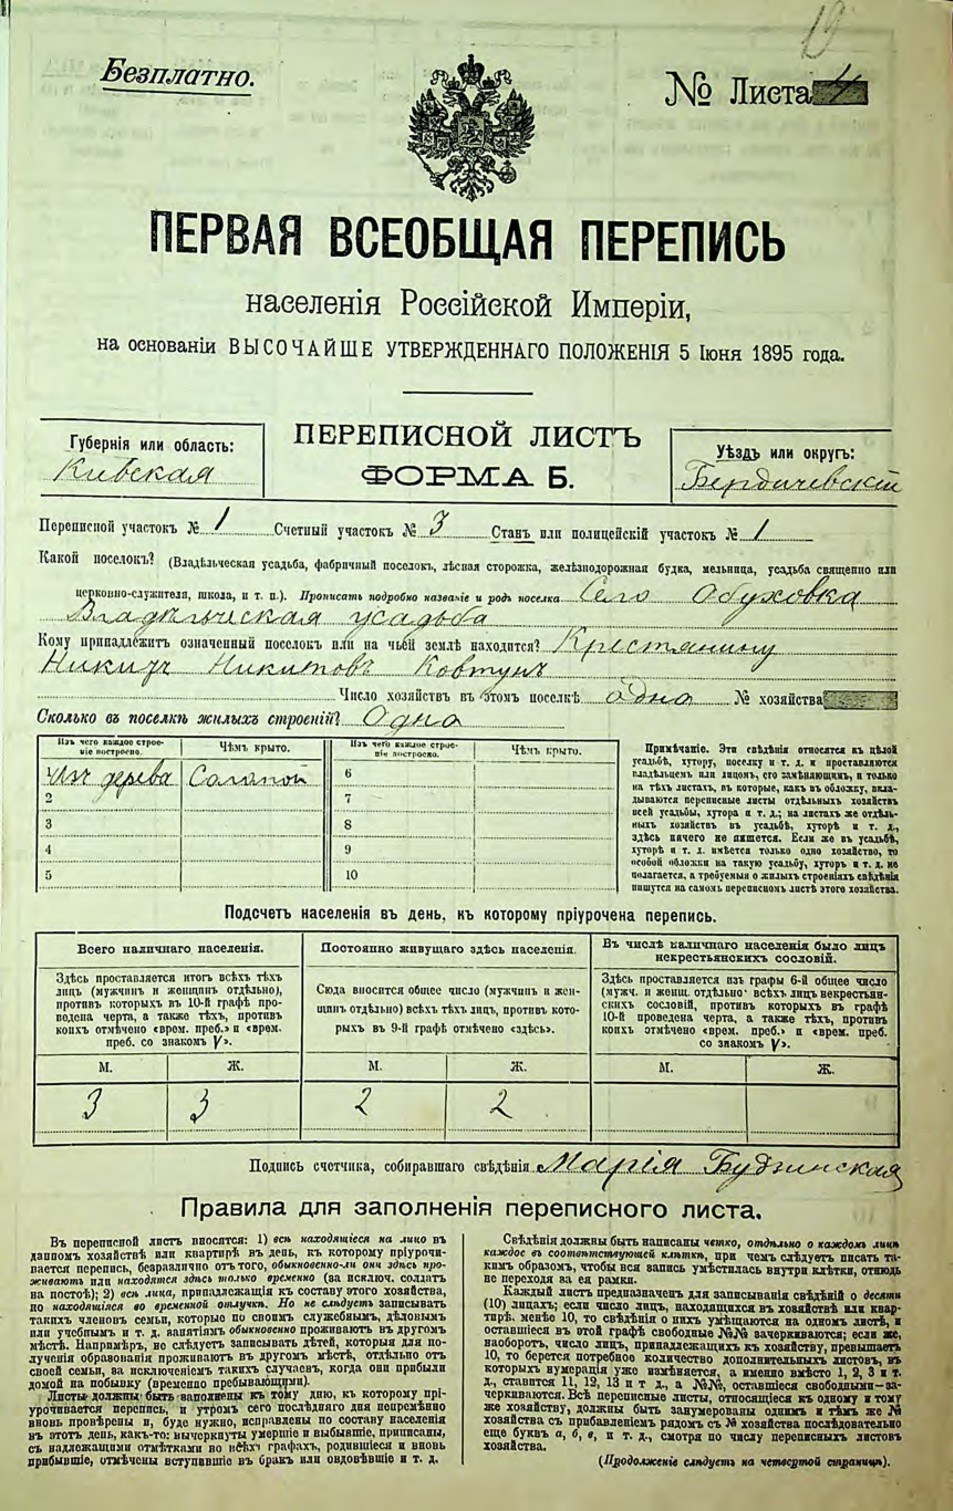 Безплатно.
№ Листа
ПЕРВАЯ ВСЕОБЩАЯ ПЕРЕПИСЬ
населенія Россійской Имперіи,
на основаніи ВЫСОЧАЙШЕ УТВЕРЖДЕННАГО ПОЛОЖЕНІЯ 5 Іюня 1895 года.
Губернія или область:
Кіевская
ПЕРЕПИСНОЙ ЛИСТЪ
ФОРМА Б.
Уѣздъ или округъ:
Бердичевскій
Переписной участокъ № 1 Счетный участокъ № 3 Станъ или полицейскій участокъ № 1
Какой поселокъ? (Владѣльческая усадьба, фабричный поселокъ, лѣсная сторожка, желѣзнодорожная будка, мельница, усадьба священно или
церковно-служителя, школа, и т. п.). Прописать подробно названіе и родъ поселка Село Обуховка
Владѣльческая усадьба
Кому принадлежитъ означенный поселокъ или на чьей землѣ находится? Крестянину
Никитовъ Ковтунъ
Число хозяйствъ въ этомъ поселкѣ одно № хозяйства
Сколько въ поселкѣ жилыхъ строеній? Одно
Изъ чего каждое строе-
ніе построено.
Чѣмъ крыто.
Изъ чего каждое строе-
ніе построено.
Чѣмъ крыто.
Изъ дерева Соломой
2
3
4
5
6
7
8
9
10
Примѣчаніе. Эти свѣдѣнія относятся къ цѣлой
усадьбѣ, хутору, поселку и т. д. и проставляются
владѣльцемъ или лицомъ, его замѣняющимъ, и только
на тѣхъ листахъ, въ которые, какъ въ обложку, вкла-
дываются переписные листы отдѣльныхъ хозяйствъ
всей усадьбы, хутора и т. д.; на листахъ же отдѣль-
ныхъ хозяйствъ въ усадьбѣ, хуторѣ и т. д.,
здѣсь ничего не пишется. Если же въ усадьбѣ,
хуторѣ и т. д. имѣется только одно хозяйство, то
особой обложки на такую усадьбу, хуторъ и т. д. не
полагается, а требуемыя о жилыхъ строеніяхъ свѣдѣнія
пишутся на самомъ переписномъ листѣ этого хозяйства.
Подсчетъ населенія въ день, къ которому пріурочена перепись.
Всего наличнаго населенія.
Здѣсь проставляется итогъ всѣхъ тѣхъ
лицъ (мужчинъ и женщинъ отдѣльно),
противъ которыхъ въ 10-й графѣ про-
ведена черта, а также тѣхъ, противъ
коихъ отмѣчено «врем. преб.» и «врем.
преб. со знакомъ V».
Постоянно живущаго здѣсь населенія.
Сюда вносится общее число (мужчинъ и жен-
щинъ отдѣльно) всѣхъ тѣхъ лицъ, противъ кото-
рыхъ въ 9-й графѣ отмѣчено «здѣсь».
Въ числѣ наличнаго населенія было лицъ
некрестьянскихъ сословій.
Здѣсь проставляется изъ графы 6-й общее число
(мужч. и женщ. отдѣльно) всѣхъ лицъ некрестьян-
скихъ сословій, противъ которыхъ въ графѣ
10-й проведена черта, а также тѣхъ, противъ
коихъ отмѣчено «врем. преб.» и «врем. преб.
со знакомъ V».
М. Ж. М. Ж. М. Ж.
3 3 2 2
Подпись счетчика, собиравшаго свѣдѣнія Марія Будзинская
Правила для заполненія переписного листа.
Въ переписной листъ вносятся: 1) всѣ находящіеся на лицо въ
данномъ хозяйствѣ или квартирѣ въ день, къ которому пріурочи-
вается перепись, безразлично отъ того, обыкновенно-ли они здѣсь про-
живаютъ или находятся здѣсь только временно (за исключ. солдатъ
на постоѣ); 2) всѣ лица, принадлежащія къ составу этого хозяйства,
но находящіяся во временной отлучкѣ. Но не слѣдуетъ записывать
такихъ членовъ семьи, которые по своимъ служебнымъ, дѣловымъ
или учебнымъ и т. д. занятіямъ обыкновенно проживаютъ въ другомъ
мѣстѣ. Напримѣръ, не слѣдуетъ записывать дѣтей, которыя для по-
лученія образованія проживаютъ въ другомъ мѣстѣ, отдѣльно отъ
своей семьи, за исключеніемъ такихъ случаевъ, когда они прибыли
домой на побывку (временно пребывающими).
Листы должны быть заполнены къ тому дню, къ которому прі-
урочивается перепись, и утромъ сего послѣдняго дня непремѣнно
вновь провѣрены и, буде нужно, исправлены по составу населенія
въ этотъ день, какъ-то: вычеркнуты умершіе и выбывшіе, приписаны,
съ надлежащими отмѣтками во всѣхъ графахъ, родившіеся и вновь
прибывшіе, отмѣчены вступившіе въ бракъ или овдовѣвшіе и т. д.
Свѣдѣнія должны быть написаны четко, отдѣльно о каждомъ лицѣ
каждое въ соотвѣтствующей клѣткѣ, при чемъ слѣдуетъ писать та-
кимъ образомъ, чтобы вся запись умѣстилась внутри клѣтки, отнюдь
не переходя за ея рамки.
Каждый листъ предназначенъ для записыванія свѣдѣній о десяти
(10) лицахъ; если число лицъ, находящихся въ хозяйствѣ или квар-
тирѣ, менѣе 10, то свѣдѣнія о нихъ умѣщаются на одномъ листѣ, и
оставшіеся въ этой графѣ свободные №№ зачеркиваются; если же,
наоборотъ, число лицъ, принадлежащихъ къ хозяйству, превышаетъ
10, то берется потребное количество дополнительныхъ листовъ, въ
которыхъ нумерація уже измѣняется, а именно вмѣсто 1, 2, 3 и т.
д., ставится 11, 12, 13 и т д., а №№, оставшіеся свободными—за-
черкиваются. Всѣ переписные листы, относящіеся къ одному и тому
же хозяйству, должны быть занумерованы однимъ и тѣмъ же №
хозяйства съ прибавленіемъ рядомъ съ № хозяйства послѣдовательно
еще буквъ а, б, в, и т. д., смотря по числу переписныхъ листовъ
хозяйства.
(Продолженіе слѣдуетъ на четвертой страницѣ).